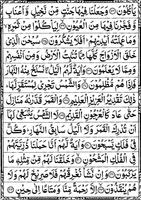 يَأْكُلُوْنَ ۝ وَجَعَلْنَا فِيْهَا جَنّٰتٍ مِّنْ نَّخِيْلٍ وَّاَعْنَابٍ
وَّفَجَّرْنَا فِيْهَا مِنَ الْعُيُوْنِ ۝ لِيَاْكُلُوْا مِنْ ثَمَرِهٖ ۙ
وَمَا عَمِلَتْهُ اَيْدِيْهِمْ ؕ اَفَلَا يَشْكُرُوْنَ ۝ سُبْحٰنَ الَّذِيْ
خَلَقَ الْاَزْوَاجَ كُلَّهَا مِمَّا تُنْۢبِتُ الْاَرْضُ وَمِنْ اَنْفُسِهِمْ
وَمِمَّا لَا يَعْلَمُوْنَ ۝ وَاٰيَةٌ لَّهُمُ الَّيْلُ ۖۚ نَسْلَخُ مِنْهُ النَّهَارَ
فَاِذَا هُمْ مُّظْلِمُوْنَ ۝ وَالشَّمْسُ تَجْرِيْ لِمُسْتَقَرٍّ لَّهَا ؕ
ذٰلِكَ تَقْدِيْرُ الْعَزِيْزِ الْعَلِيْمِ ۝ وَالْقَمَرَ قَدَّرْنٰهُ مَنَازِلَ
حَتّٰى عَادَ كَالْعُرْجُوْنِ الْقَدِيْمِ ۝ لَا الشَّمْسُ يَنْۢبَغِيْ لَهَاۤ
اَنْ تُدْرِكَ الْقَمَرَ وَلَا الَّيْلُ سَابِقُ النَّهَارِ ؕ وَكُلٌّ
فِيْ فَلَكٍ يَّسْبَحُوْنَ ۝ وَاٰيَةٌ لَّهُمْ اَنَّا حَمَلْنَا ذُرِّيَّتَهُمْ
فِي الْفُلْكِ الْمَشْحُوْنِ ۝ وَخَلَقْنَا لَهُمْ مِّنْ مِّثْلِهٖ مَا
يَرْكَبُوْنَ ۝ وَاِنْ نَّشَاْ نُغْرِقْهُمْ فَلَا صَرِيْخَ لَهُمْ وَلَا
هُمْ يُنْقَذُوْنَ ۝ اِلَّا رَحْمَةً مِّنَّا وَمَتَاعًا اِلٰى حِيْنٍ ۝